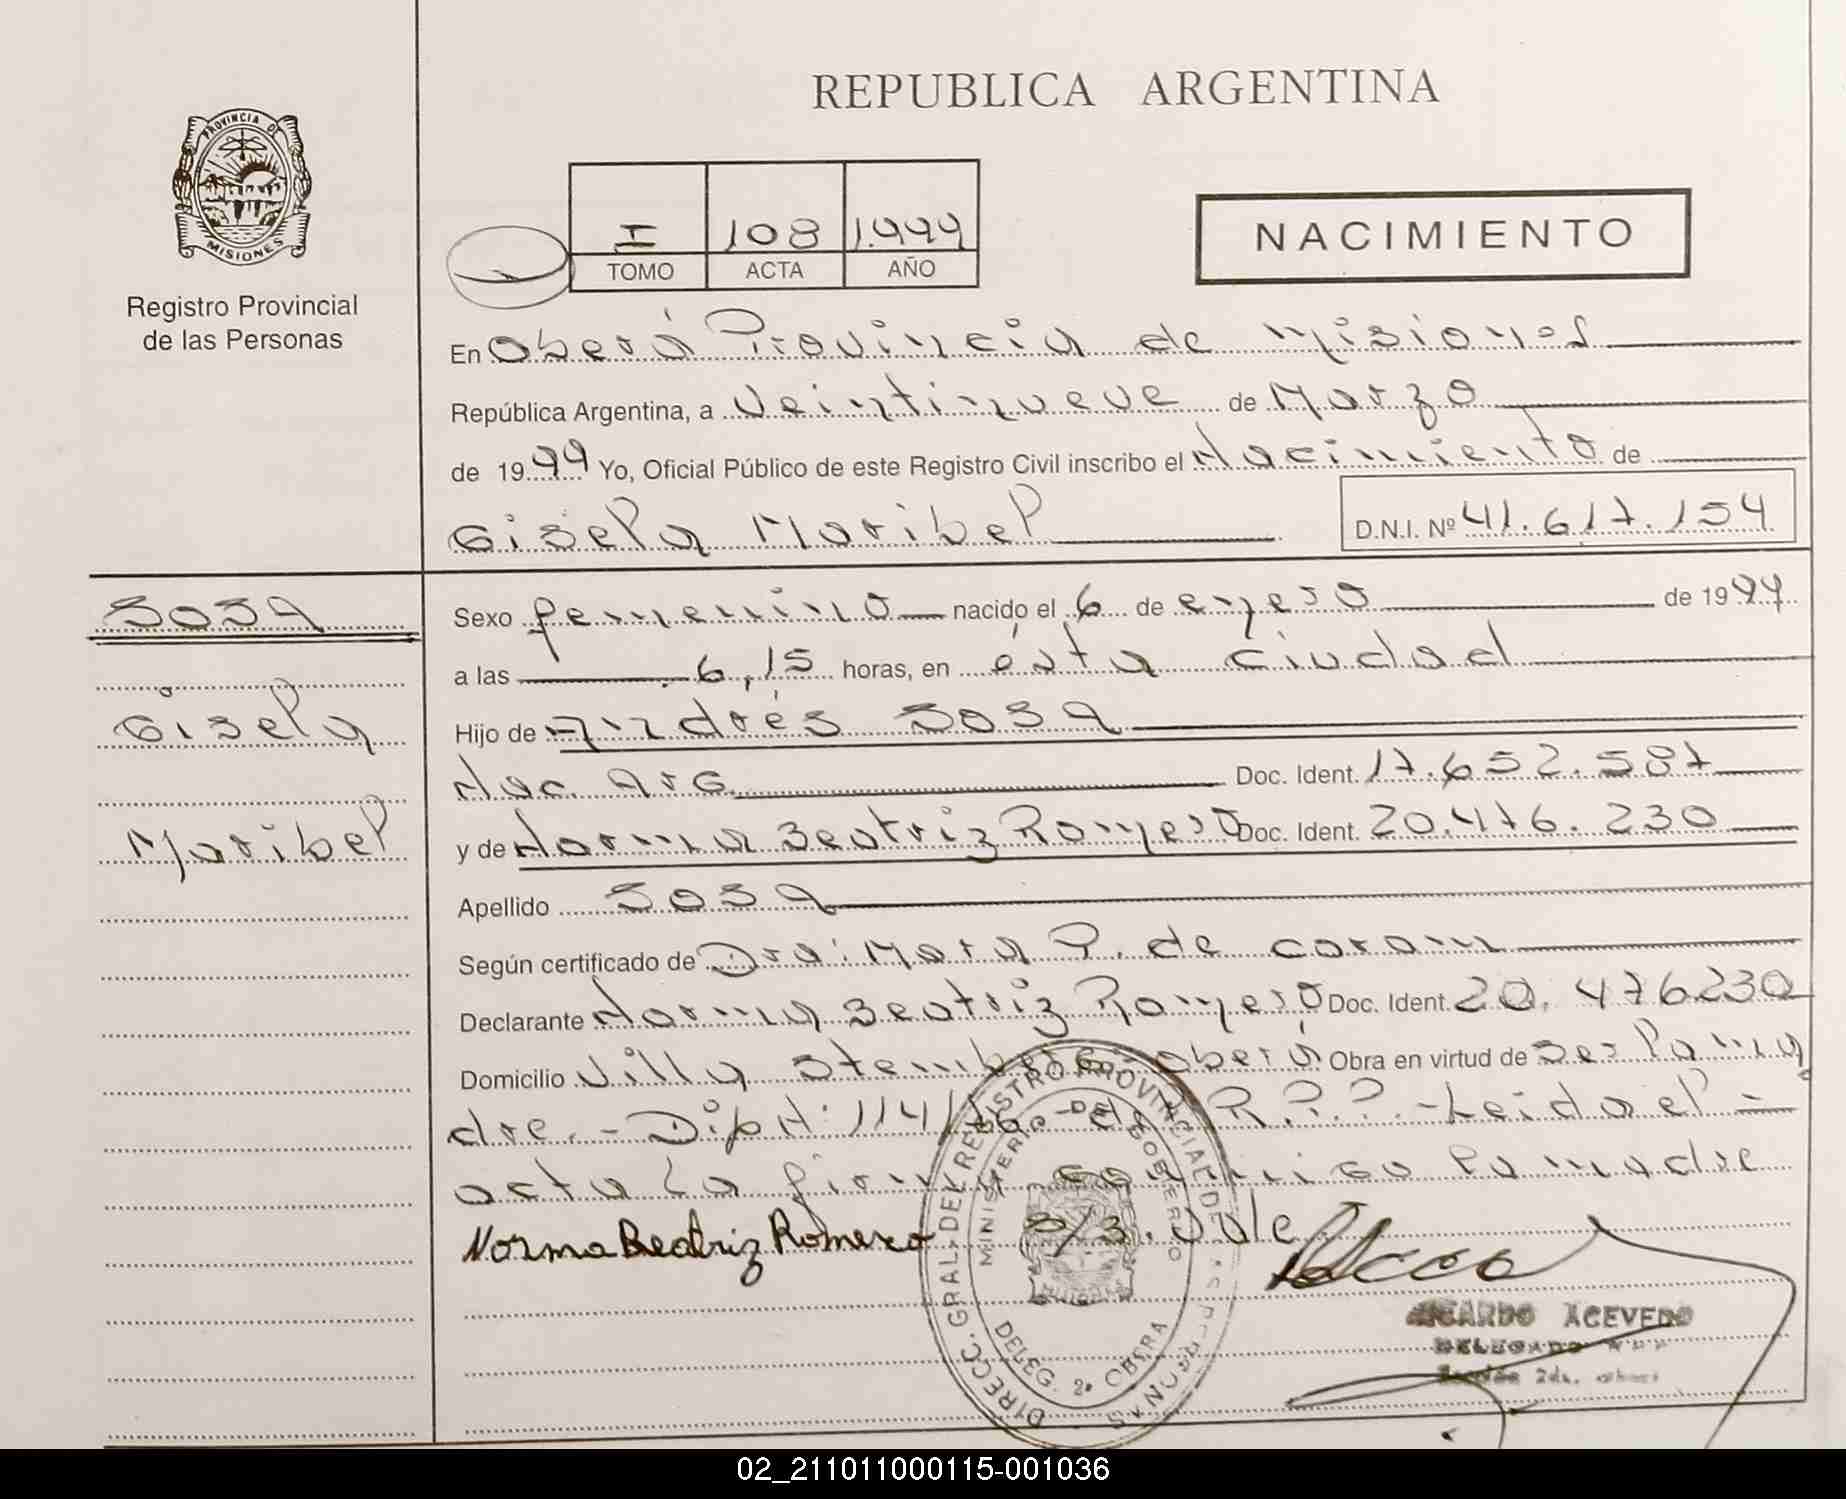 REPUBLICA ARGENTINA
PROVINCIA DE
MISIONES
Registro Provincial
de las Personas
I 108 1.999
TOMO ACTA AÑO
NACIMIENTO
En Oberá Provincia de Misiones
República Argentina, a Veintinueve de Marzo
de 1999 Yo, Oficial Público de este Registro Civil inscribo el Nacimiento de
Gisela Maribel D.N.I. Nº 41.617.154
Sosa
Gisela
Maribel
Sexo femenino nacido el 6 de enero de 1999
a las 6,15 horas, en ésta ciudad
Hijo de Andrés Sosa
Nac. Arg. Doc. Ident. 17.652.587
y de Norma Beatriz Romero Doc. Ident. 20.476.230
Apellido Sosa
Según certificado de Dra: Mara P. de
Declarante Norma Beatriz Romero Doc. Ident. 20.476230
Domicilio Villa Oberá Obra en virtud de ser la ma
dre.- Disp N: 114/ del R.P.P.- Leida el
acta La firma conmigo la madre
s/s. Vale
Norma Beatriz Romero
DIRECC. GRAL. DEL REGISTRO PROVINCIAL DE PERSONAS
MINISTERIO DE GOBIERNO
DELEG. 2ª OBERA
RICARDO ACEVEDO
DELEGADO R.P.P.
Sección 2da. Oberá
02_211011000115-001036